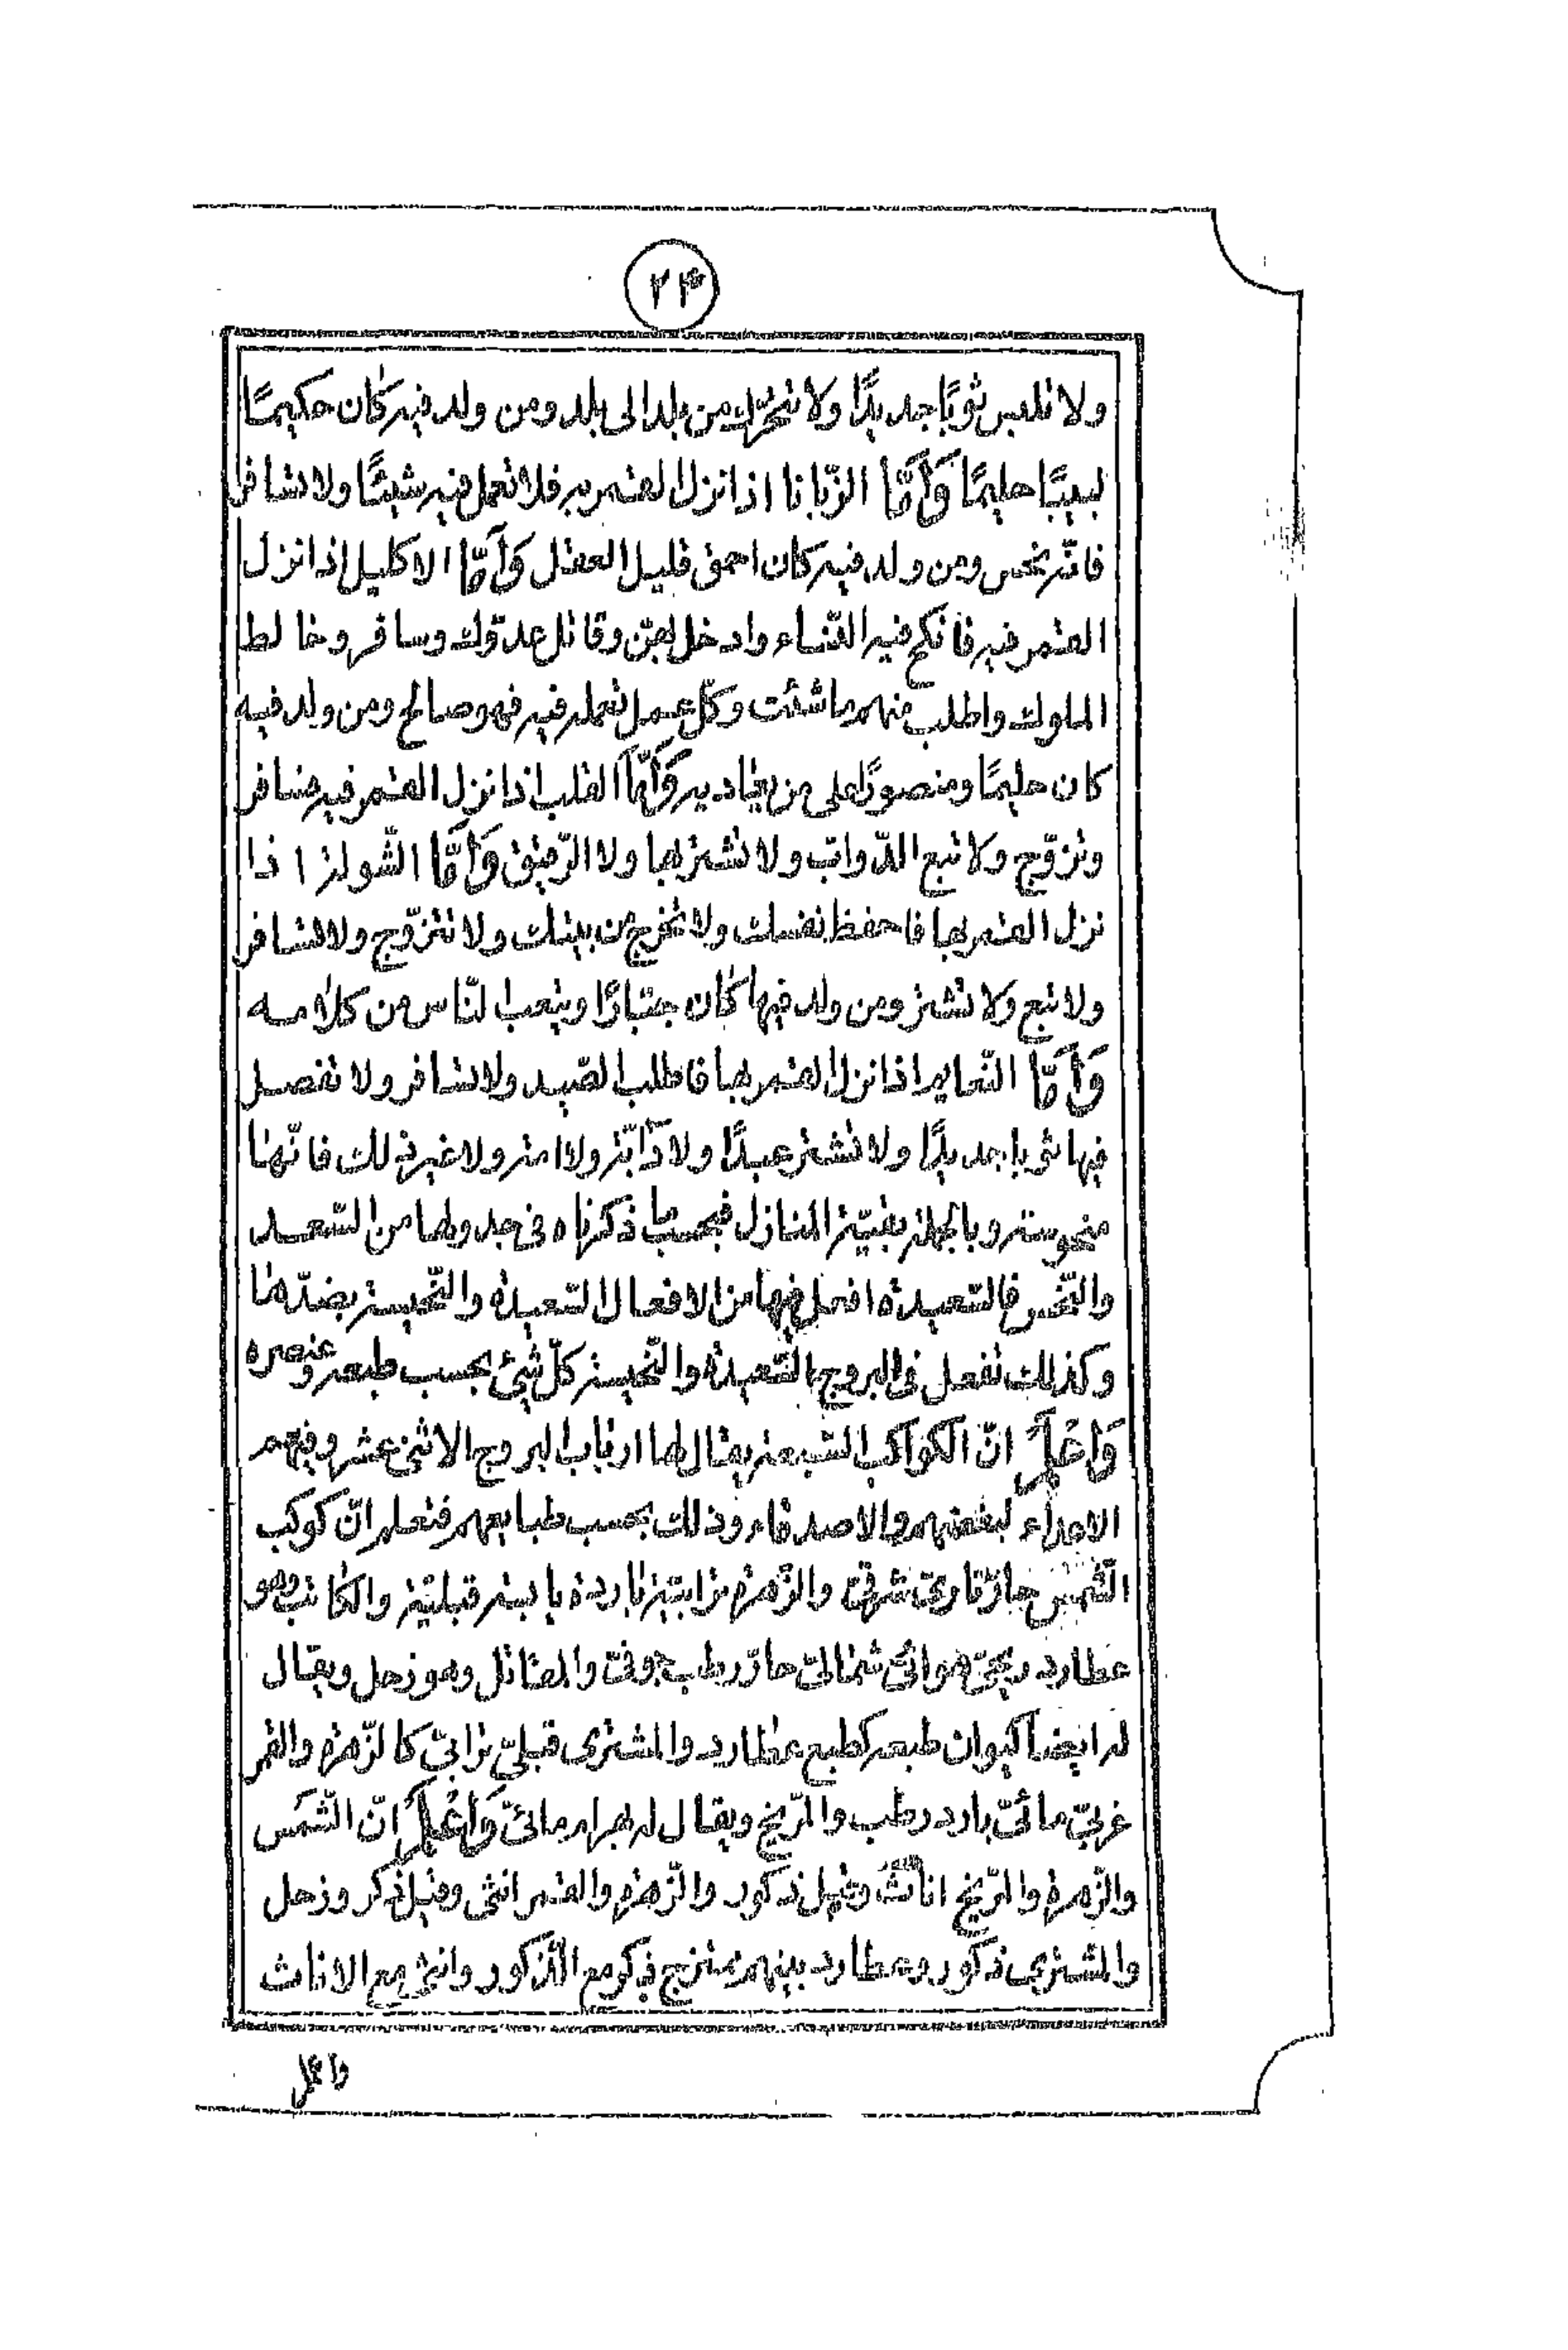 ۲۴
ولا تلبس ثوبًا جديدًا ولا تتحرّك من بلد الى بلد ومن ولد فيه كان حكيمًا
لبيبًا حليمًا وَأَمَّا الزّبانا اذا نزل القمر به فلا تعمل فيه شيئًا ولا تسافر
فانّه نحس ومن ولد فيه كان احمق قليل العقل وَأَمَّا الاكليل اذا نزل
القمر فيه فانكح فيه النّساء وادخل بهنّ وقاتل عدوّك وسافر وخالط
الملوك واطلب منهم ما شئت وكلّ عمل تعمله فيه فهو صالح ومن ولد فيه
كان حليمًا ومنصورًا على من يعاديه وَأَمَّا القلب اذا نزل القمر فيه فسافر
وتزوّج ولا تبع الدّوابّ ولا تشتر بها ولا الرّقيق وَأَمَّا الشولة اذا
نزل القمر بها فاحفظ نفسك ولا تخرج من بيتك ولا تتزوّج ولا تسافر
ولا تبع ولا تشتر ومن ولد فيها كان جبّارًا ويتعب النّاس من كلامه
وَأَمَّا النّعايم اذا نزل القمر بها فاطلب الصّيد ولا تسافر ولا تفصل
فيها ثوبا جديدًا ولا تشتر عبدًا ولا دآبّة ولا امة ولا غير ذلك فانّها
منحوسة وبالجملة بقيّة المنازل فبحسب ما ذكرناه فى جدولها من السّعد
والنّحس فالسّعيدة افعل فيها من الافعال السّعيدة والنّحيسة بضدّها
وكذلك تفعل فى البروج السّعيدة والنّحيسة كلّ شئ بحسب طبعه وعنصره
وَاعْلَمْ انّ الكواكب السّبعة يقال لها ارباب البروج الاثنى عشر وفيهم
الاعداء لبعضهم والاصدقاء وذلك بحسب طبايعهم فتعلم انّ كوكب
الشّمس حارّ نارىّ شرقىّ والزّهرة ترابيّة باردة يابسة قبليّة والكاتب وهو
عطارد ريحىّ هوائىّ شمالىّ حارّ رطب جوفىّ والمقاتل وهو زحل ويقال
له ايضا كيوان طبعه كطبع عطارد والمشترى قبلىّ ترابىّ كالزّهرة والقمر
غربىّ مائىّ بارد رطب والمرّيخ ويقال له بهرام مائىّ وَاعْلَمْ انّ الشّمس
والزّهرة والمرّيخ اناث وقيل ذكور والزّهرة والقمر انثى وقيل ذكر وزحل
والمشترى ذكور وعطارد بينهم ممتزج ذكر مع الذّكور وانثى مع الاناث
واعلم